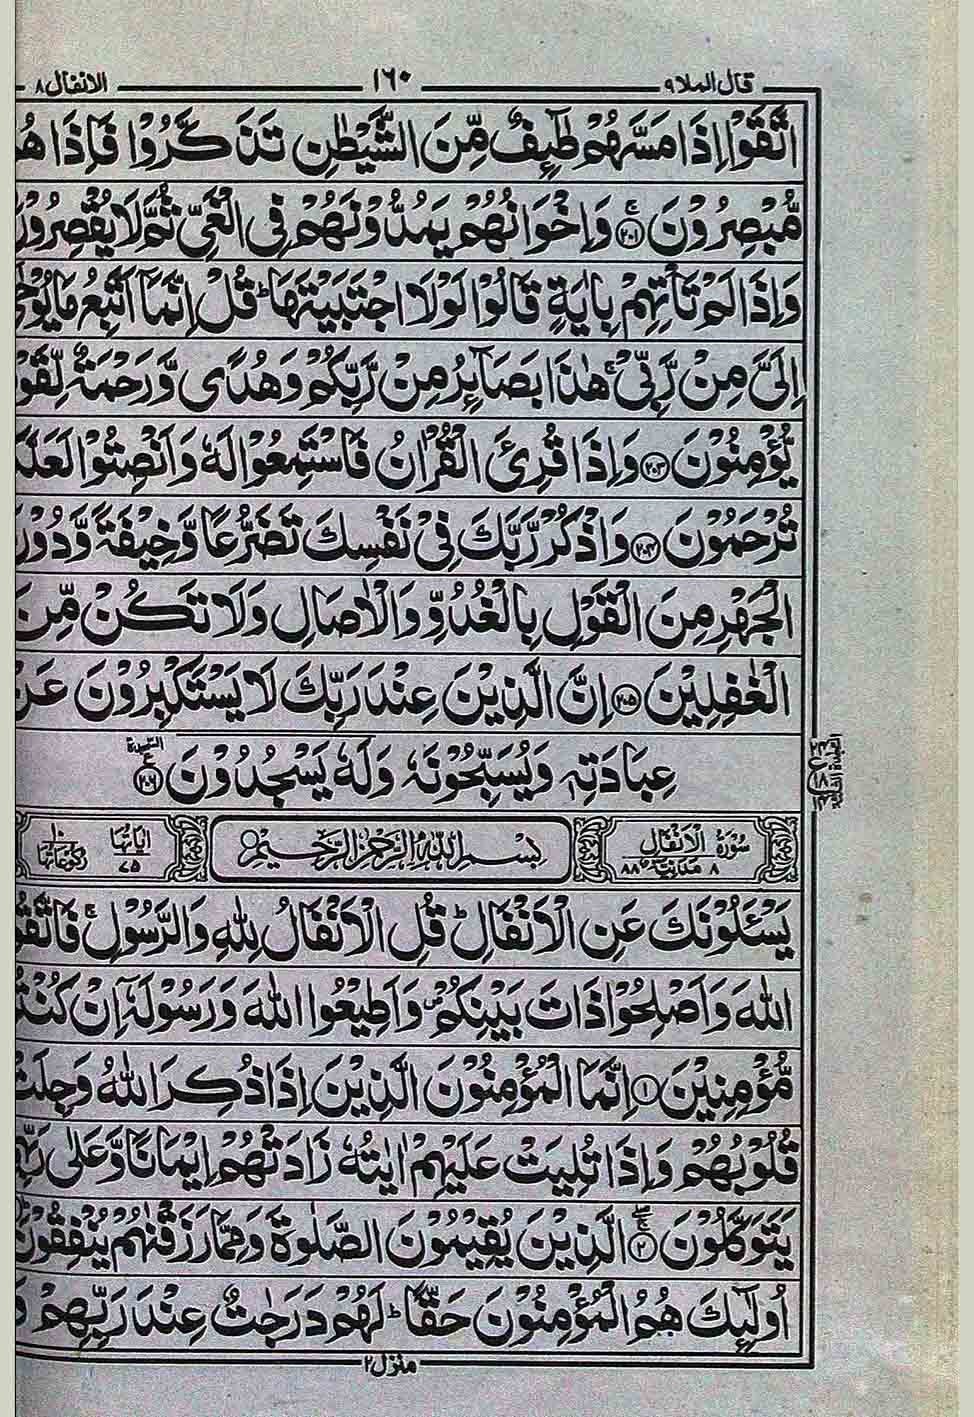 قال الملا ٩ ١٦٠ الانفال ٨
اتَّقَوْا اِذَا مَسَّهُمْ طٰٓىِٕفٌ مِّنَ الشَّيْطٰنِ تَذَكَّرُوْا فَاِذَا هُ
مُّبْصِرُوْنَ ۚ‏﴿۲۰۱﴾ وَاِخْوَانُهُمْ يَمُدُّوْنَهُمْ فِى الْغَىِّ ثُمَّ لَا يُقْصِرُوْ
وَاِذَا لَمْ تَاْتِهِمْ بِاٰيَةٍ قَالُوْا لَوْلَا اجْتَبَيْتَهَا ؕ قُلْ اِنَّمَاۤ اَتَّبِعُ مَا يُوْحٰٓ
اِلَىَّ مِنْ رَّبِّىْ ۚ هٰذَا بَصَآىِٕرُ مِنْ رَّبِّكُمْ وَهُدًى وَّرَحْمَةٌ لِّقَوْ
يُّؤْمِنُوْنَ ﴿۲۰۳﴾ وَاِذَا قُرِئَ الْقُرْاٰنُ فَاسْتَمِعُوْا لَهٗ وَاَنْصِتُوْا لَعَلَّ
تُرْحَمُوْنَ ﴿۲۰۴﴾ وَاذْكُرْ رَّبَّكَ فِىْ نَفْسِكَ تَضَرُّعًا وَّخِيْفَةً وَّدُوْنَ
الْجَهْرِ مِنَ الْقَوْلِ بِالْغُدُوِّ وَالْاٰصَالِ وَلَا تَكُنْ مِّنَ
الْغٰفِلِيْنَ ﴿۲۰۵﴾ اِنَّ الَّذِيْنَ عِنْدَ رَبِّكَ لَا يَسْتَكْبِرُوْنَ عَنْ
عِبَادَتِهٖ وَيُسَبِّحُوْنَهٗ وَلَهٗ يَسْجُدُوْنَ ﴿۲۰۶﴾ السجدة ع
سُوْرَةُ الْاَنْفَالِ ٨ مَدَنِيَّةٌ ٨٨ بِسْمِ اللّٰهِ الرَّحْمٰنِ الرَّحِيْمِ اٰيَاتُهَا ٧٥ رُكُوْعَاتُهَا ١٠
يَسْـَٔلُوْنَكَ عَنِ الْاَنْفَالِ ؕ قُلِ الْاَنْفَالُ لِلّٰهِ وَالرَّسُوْلِ ۚ فَاتَّقُو
اللّٰهَ وَاَصْلِحُوْا ذَاتَ بَيْنِكُمْ ۪ وَاَطِيْعُوا اللّٰهَ وَرَسُوْلَهٗۤ اِنْ كُنْتُ
مُّؤْمِنِيْنَ ﴿۱﴾ اِنَّمَا الْمُؤْمِنُوْنَ الَّذِيْنَ اِذَا ذُكِرَ اللّٰهُ وَجِلَتْ
قُلُوْبُهُمْ وَاِذَا تُلِيَتْ عَلَيْهِمْ اٰيٰتُهٗ زَادَتْهُمْ اِيْمَانًا وَّعَلٰى رَبِّهِ
يَتَوَكَّلُوْنَ ۚۖ﴿۲﴾ الَّذِيْنَ يُقِيْمُوْنَ الصَّلٰوةَ وَمِمَّا رَزَقْنٰهُمْ يُنْفِقُوْنَ
اُولٰٓىِٕكَ هُمُ الْمُؤْمِنُوْنَ حَقًّا ؕ لَهُمْ دَرَجٰتٌ عِنْدَ رَبِّهِمْ وَ
منزل ٢